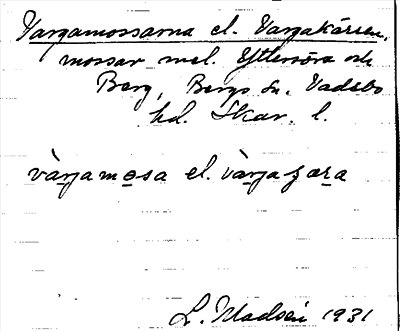 Vargamossarna el. Vargakärren,
mossar mel. Yttersöra och
Berg, Bergs sn. Vadsbo
hd. Skar. l.
vàrjamosa el. vàrja
L. Madsén 1931